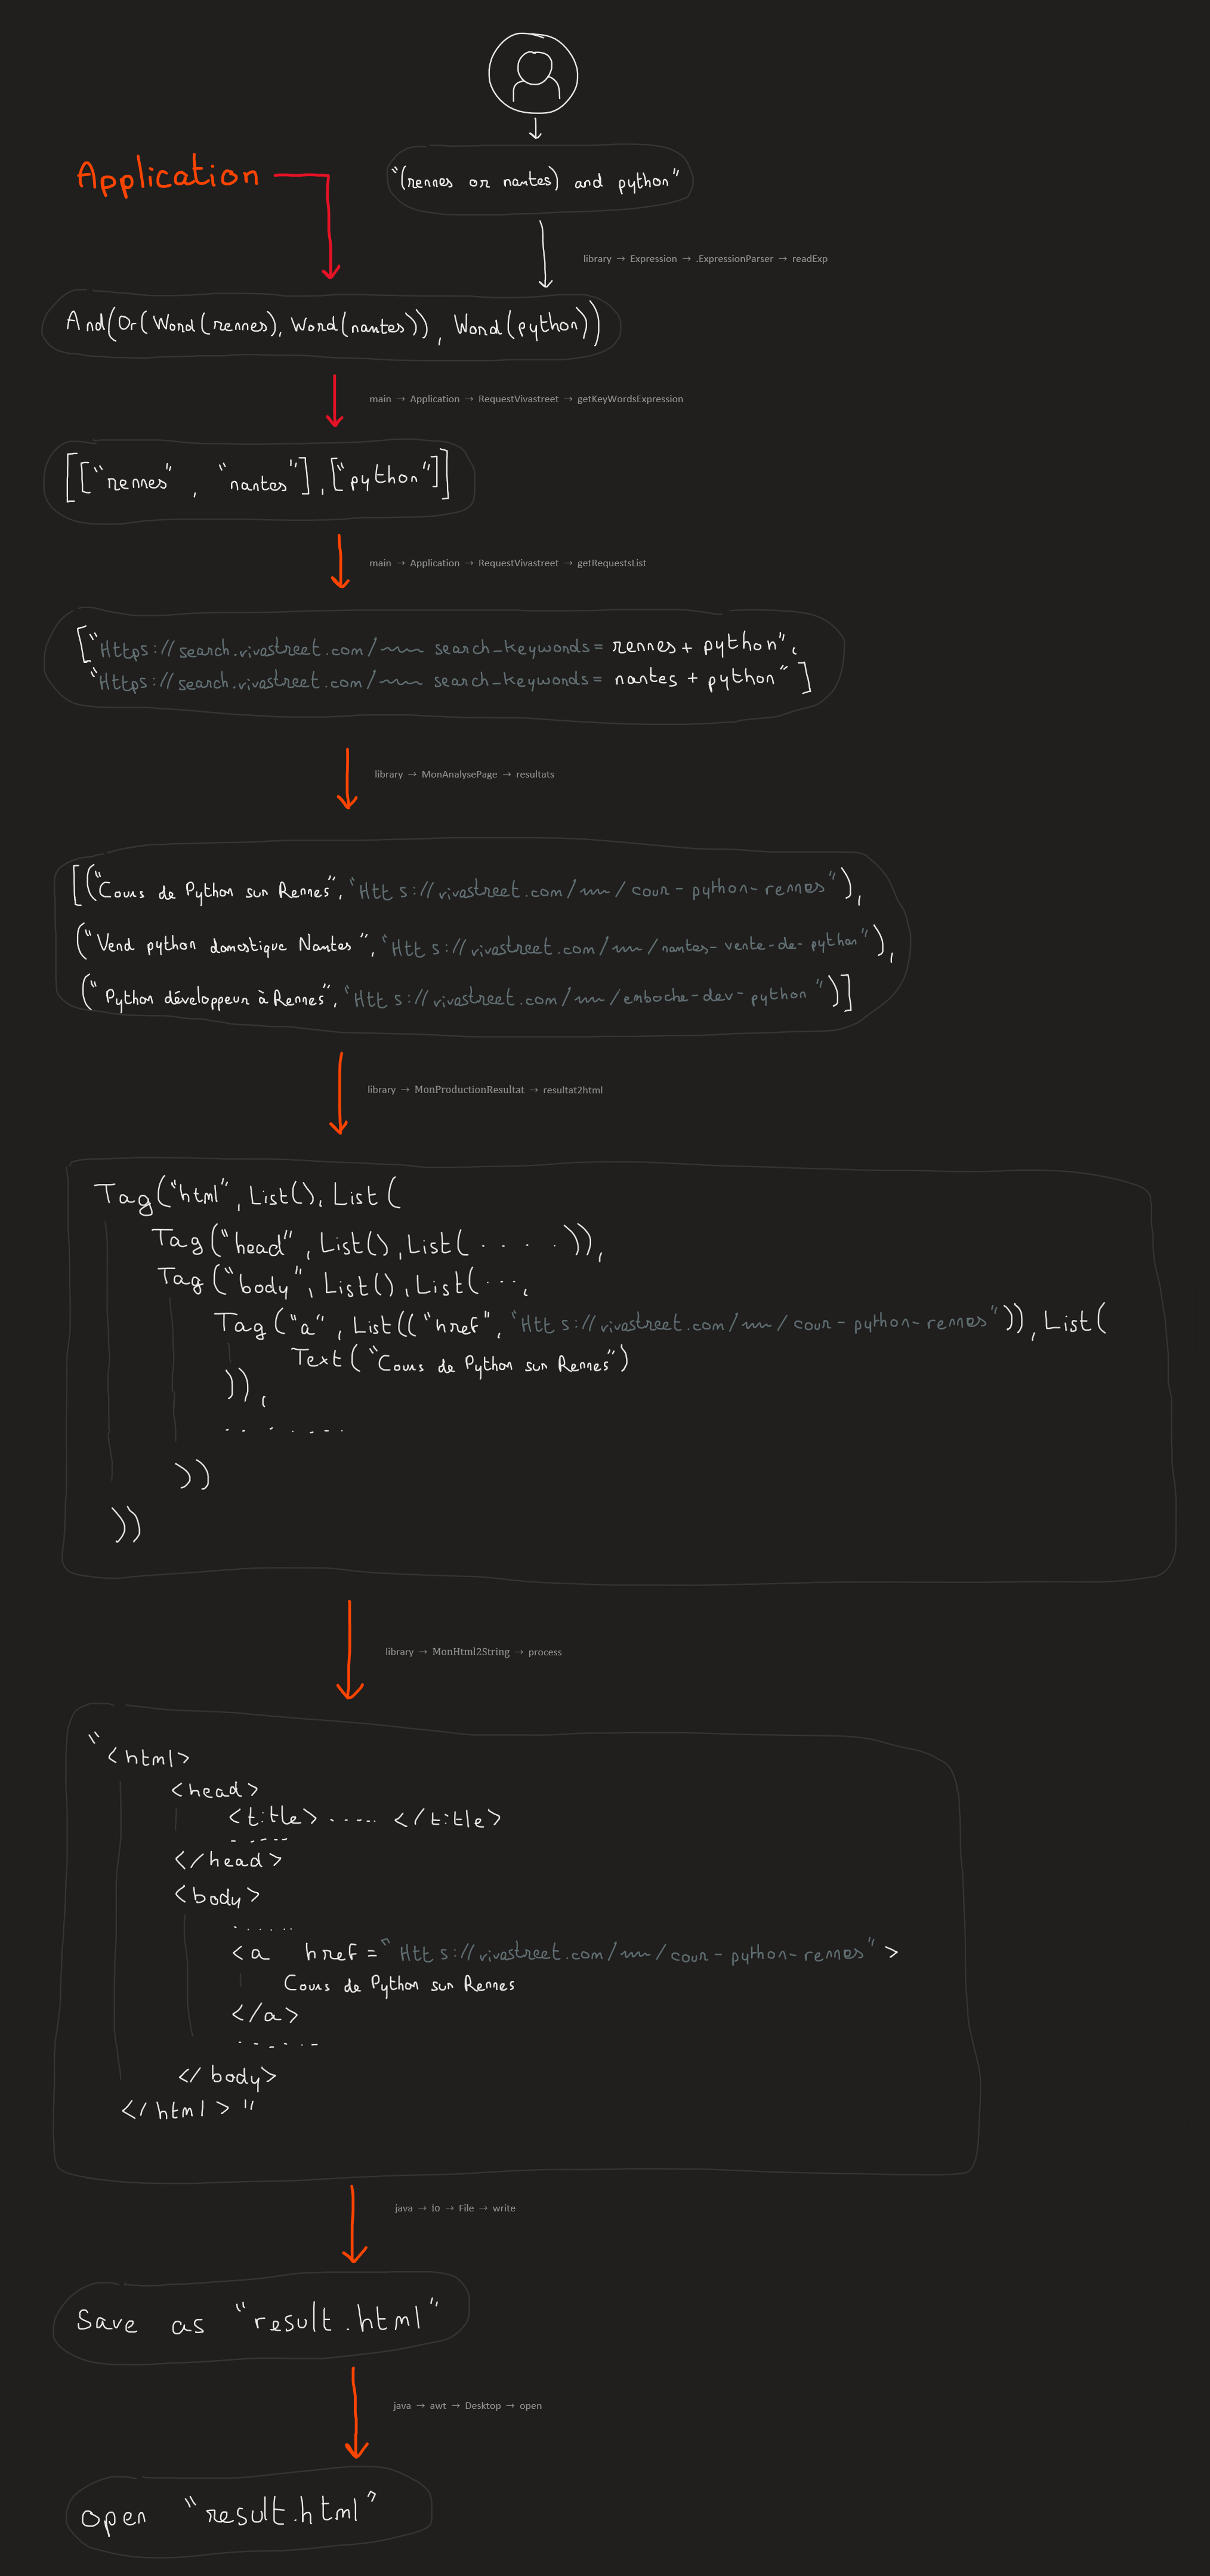 Application
"(rennes or nantes) and python"
library → Expression → .ExpressionParser → readExp
And(Or(Word(rennes), Word(nantes)), Word(python))
main → Application → RequestVivastreet → getKeyWordsExpression
[["rennes", "nantes"], ["python"]]
main → Application → RequestVivastreet → getRequestsList
["Https://search.vivastreet.com/ search_keywords= rennes + python",
"Https://search.vivastreet.com/ search_keywords= nantes + python"]
library → MonAnalysePage → resultats
[("Cours de Python sur Rennes", "Htt s://vivastreet.com/ / cour-python-rennes"),
("Vend python domestique Nantes", "Htt s://vivastreet.com/ /nantes-vente-de-python"),
("Python développeur à Rennes", "Htt s://vivastreet.com/ /emboche-dev-python")]
library → MonProductionResultat → resultat2html
Tag("html", List(), List(
Tag("head", List(), List( . . . . )),
Tag("body", List(), List(...,
Tag("a", List(("href", "Htt s://vivastreet.com/ / cour-python-rennes")), List(
Text("Cours de Python sur Rennes")
)),
. . . . . . . .
))
))
library → MonHtml2String → process
"<html>
<head>
<title> ..... </title>
- - - - -
</head>
<body>
. . . . . .
<a href="Htt s://vivastreet.com/ / cour-python-rennes">
Cours de Python sur Rennes
</a>
. . . . . .
</body>
</html>"
java → io → File → write
Save as "result.html"
java → awt → Desktop → open
open "result.html"